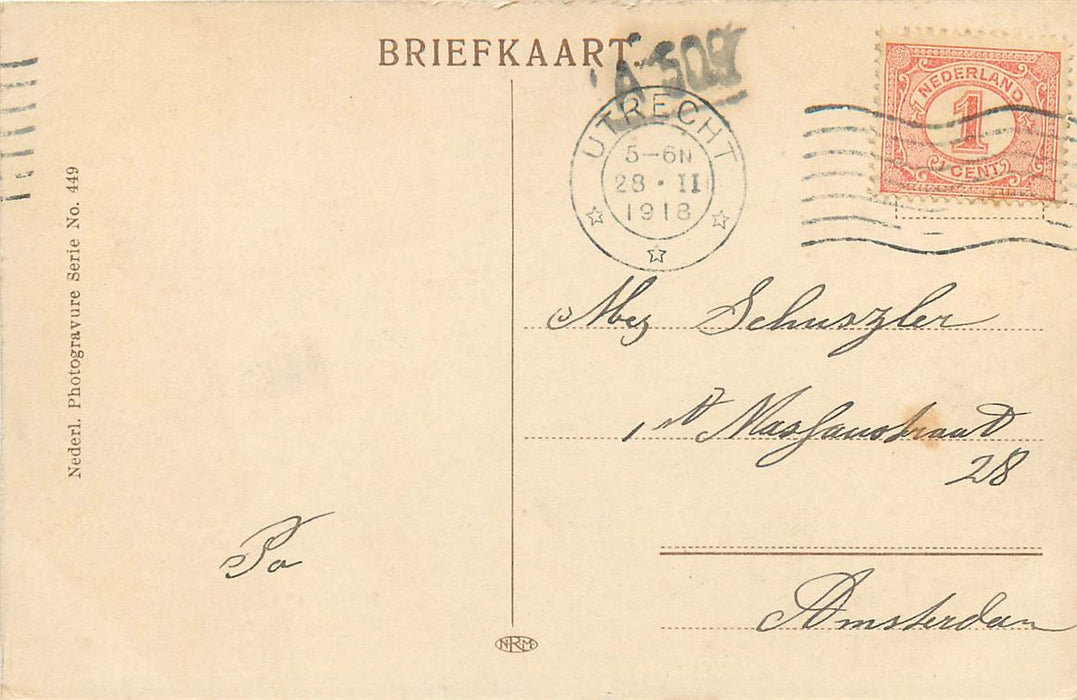 BRIEFKAART.
A-508
UTRECHT
5-6N
28 • II
1918
NEDERLAND
1
1 CENT
Nederl. Photogravure Serie No. 449
Mej Schuszler
1st Nassaustraat
28
Amsterdam
Pa
NRM